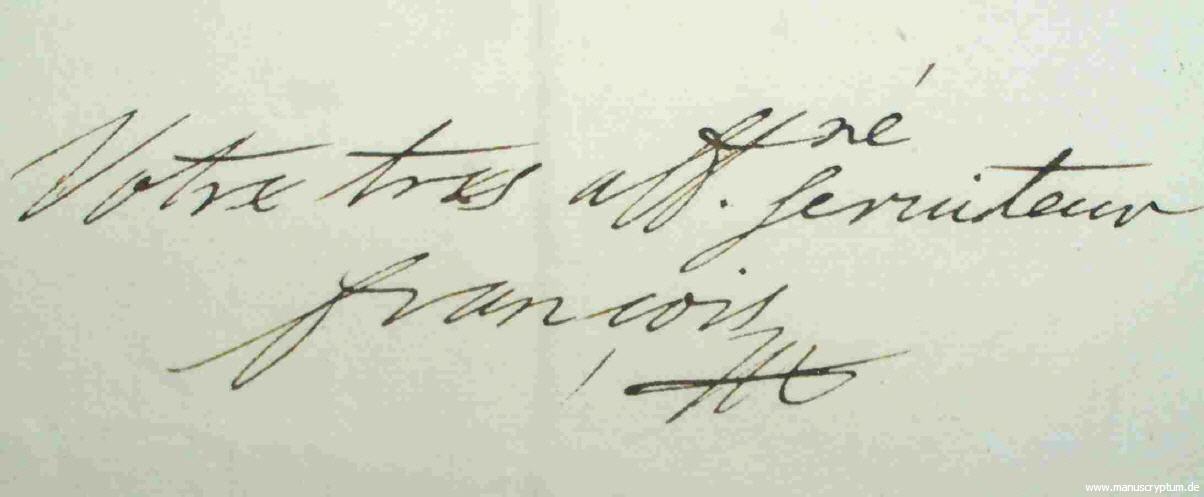 Votre tres aff.né serviteur
françois
www.manuscryptum.de